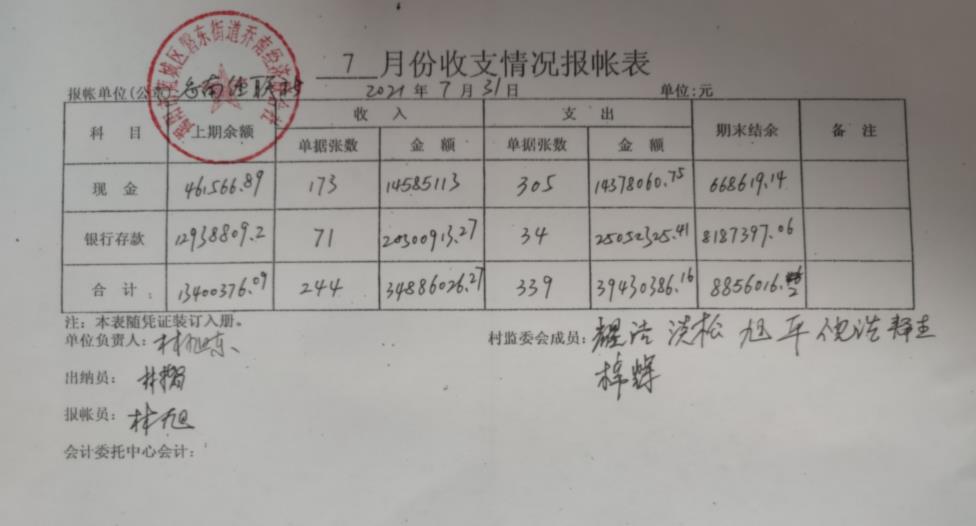 7 月份收支情况报帐表
报帐单位(公章) 乔南经联社 2021 年 7 月 31 日 单位:元
科 目 上期余额 收 入 支 出 期末结余 备 注
单据张数 金 额 单据张数 金 额
现 金 461566.89 173 14585113 305 14378060.75 668619.14
银行存款 12938809.2 71 20300913.27 34 25052325.41 8187397.06
合 计 13400376.09 244 34886026.27 339 39430386.16 8856016.2
注：本表随凭证装订入册。
单位负责人: 林旭东 村监委会成员: 耀浩 洪松 旭平
出纳员: 林 棉辉
报帐员: 林旭
会计委托中心会计: